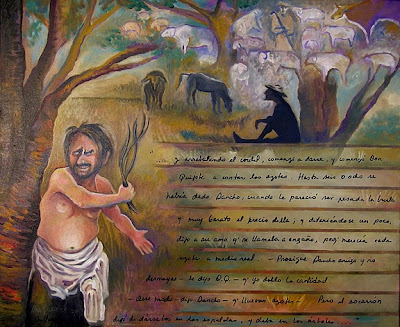 .... y arrebatando el cordel, comenzó a darse, y comenzó Don
Quijote a contar los azotes. Hasta seis o ocho se
había dado Sancho, cuando le pareció ser pesada la burla
y muy barato el precio della, y deteniéndose un poco,
dijo a su amo q' se llamaba a engaño, porq' merecía cada
azote a medio real - Prosigue Sancho amigo y no
desmayes - le dijo D.Q. - q' yo doblo la cantidad
- dese modo - dijo Sancho - y lluevan azotes - Pero el socarrón
dejó de dárselos en las espaldas, y daba en los árboles